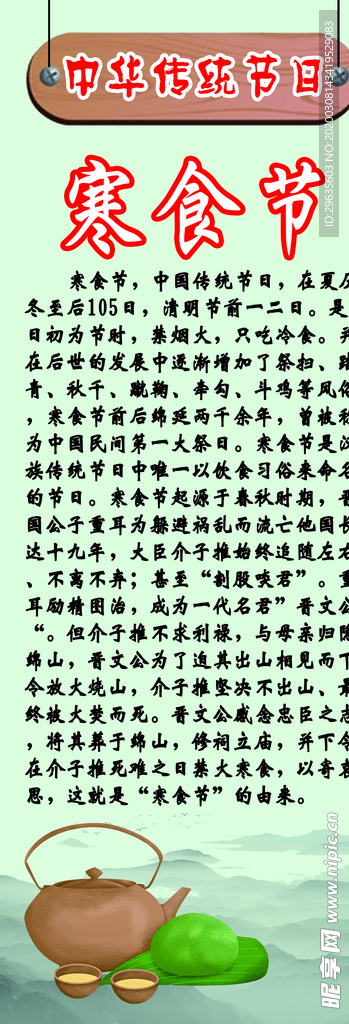 中华传统节日
寒食节
寒食节，中国传统节日，在夏历
冬至后105日，清明节前一二日。是
日初为节时，禁烟火，只吃冷食。并
在后世的发展中逐渐增加了祭扫、踏
青、秋千、蹴鞠、牵勾、斗鸡等风俗
，寒食节前后绵延两千余年，曾被称
为中国民间第一大祭日。寒食节是汉
族传统节日中唯一以饮食习俗来命名
的节日。寒食节起源于春秋时期，晋
国公子重耳为躲避祸乱而流亡他国长
达十九年，大臣介子推始终追随左右
、不离不弃；甚至“割股啖君”。重
耳励精图治，成为一代名君”晋文公
“。但介子推不求利禄，与母亲归隐
绵山，晋文公为了迫其出山相见而下
令放火烧山，介子推坚决不出山、最
终被火焚而死。晋文公感念忠臣之志
，将其葬于绵山，修祠立庙，并下令
在介子推死难之日禁火寒食，以寄哀
思，这就是“寒食节”的由来。
昵享网 www.nipic.cn
ID:29635603 NO:20200308143419529083